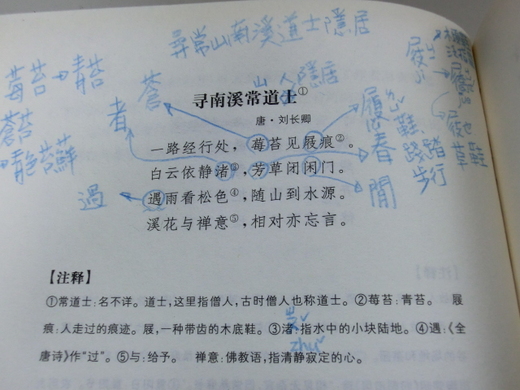 尋常山南溪道士隱居
山人隱居
莓苔→青苔
蒼苔
青色苔蘚
蒼
者
過
履
春
閒
鞋
踐踏
步行
草鞋
寻南溪常道士①
唐·刘长卿
一路经行处，莓苔见屐痕②。
白云依静渚③，芳草闭闲门。
遇雨看松色④，随山到水源。
溪花与禅意⑤，相对亦忘言。
【注释】
①常道士：名不详。道士，这里指僧人，古时僧人也称道士。②莓苔：青苔。 屐
痕：人走过的痕迹。屐，一种带齿的木底鞋。③渚：指水中的小块陆地。④遇：《全
唐诗》作“过”。⑤与：给予。 禅意：佛教语，指清静寂定的心。
zhǔ